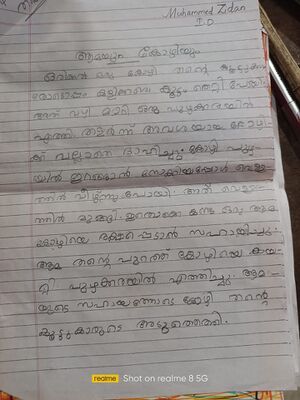 Muhammed Zidan
I.D
ആമയും കോഴിയും
ഒരിക്കൽ ഒരു കോഴി തന്റെ കൂട്ടുകാരു
കൂട്ടം തെറ്റി പോയി.
അത് വഴി മാറി ഒരു പുഴക്കരയിൽ
എത്തി. തളർന്ന് അവശയായ കോഴി-
ക്ക് വല്ലാതെ ദാഹിച്ചു. കോഴി പുഴ
യിൽ ഇറങ്ങാൻ നോക്കിയപ്പോൾ വെള്ള
ത്തിൽ വീഴ്ന്നു പോയി. അത് വെള്ള-
ത്തിൽ മുങ്ങി. ഇതൊക്കെ കണ്ട ഒരു ആമ
കോഴിയെ രക്ഷപ്പെടാൻ സഹായിച്ചു.
ആമ തന്റെ പുറത്ത് കോഴിയെ കയ-
റ്റി പുഴക്കരയിൽ എത്തിച്ചു. ആമ-
യുടെ സഹായത്തോടെ കോഴി തന്റെ
കൂട്ടുകാരുടെ അടുത്തെത്തി.
realme Shot on realme 8 5G